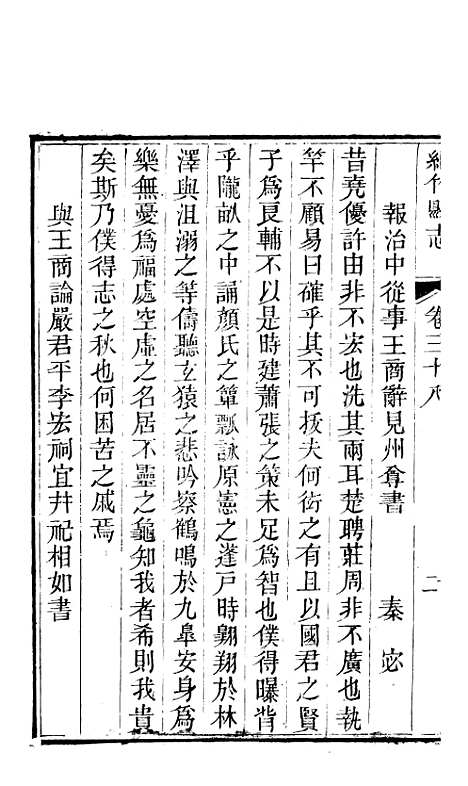 綿竹縣志
卷三十八
二
報治中從事王商辭見州尊書　秦宓
昔堯優許由非不宏也洗其兩耳楚聘莊周非不廣也執
竿不顧易曰確乎其不可拔夫何衒之有且以國君之賢
子爲良輔不以是時建蕭張之策未足爲智也僕得曝背
乎隴畝之中誦顏氏之簞瓢詠原憲之蓬戶時翱翔於林
澤與沮溺之等儔聽玄猿之悲吟察鶴鳴於九皋安身爲
樂無憂爲福處空虛之名居不靈之龜知我者希則我貴
矣斯乃僕得志之秋也何困苦之戚焉
與王商論嚴君平李宏祠宜幷祀相如書